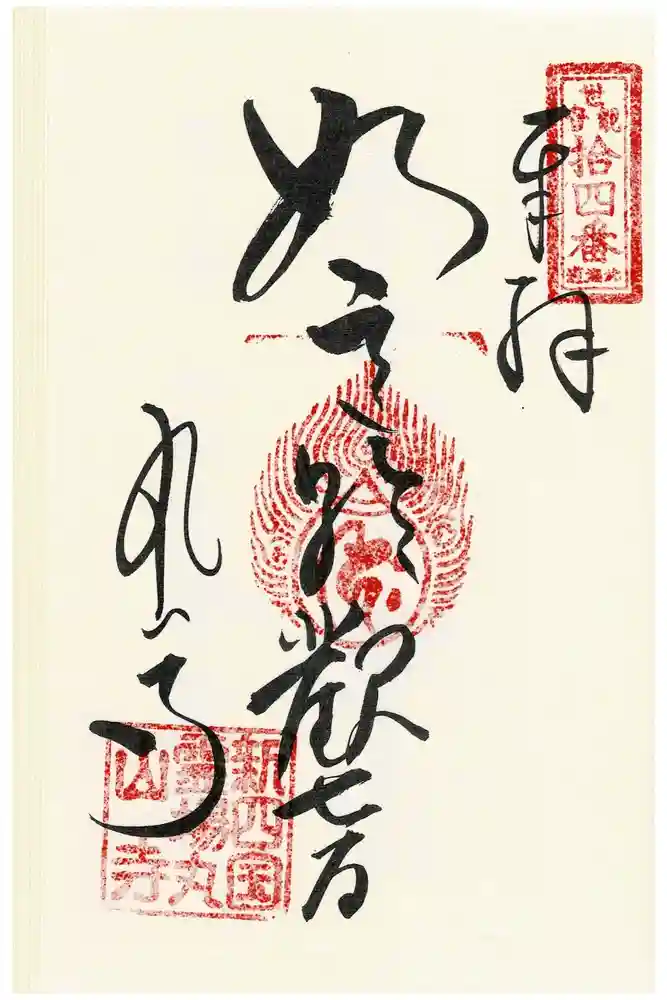 拾四番
奉拝
如意輪観世音
丸山寺
新四国
霊場丸
山寺